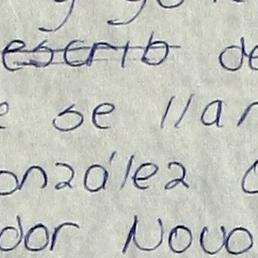 escrib de
se llar
onzález
dor Novo